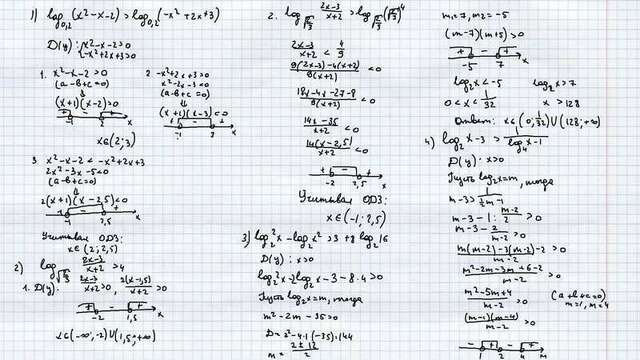 1) log₀,₂(x²-x-2) > log₀,₂(-x²+2x+3)
D(y): { x²-x-2>0
{ -x²+2x+3>0
1. x²-x-2>0
(a-b+c=0)
⇓
(x+1)(x-2)>0
+ - +
-1 2 x
x∈(2;3)
2. -x²+2x+3>0
x²-2x-3<0
(a-b+c=0)
⇓
(x+1)(x-3)<0
+ - +
-1 3 x
3. x²-x-2 < -x²+2x+3
2x²-3x-5<0
(a-b+c=0)
⇓
2(x+1)(x-2,5)<0
+ - +
-1 2,5 x
Учитывая ОДЗ:
x∈(2;2,5)
2) log
2x-3
x+2 > 4
1. D(y): 2x-3
x+2 > 0, 2(x-1,5)
x+2 > 0
+ - +
-2 1,5 x
x∈(-∞;-2)∪(1,5;+∞)
2. log 2x-3
x+2 > log
2x-3
x+2 < 4
9
9(2x-3)-4(x+2)
9(x+2) < 0
18x-4x-27-8
9(x+2) < 0
14x-35
x+2 < 0
14(x-2,5)
x+2 < 0
+ - +
-2 2,5 x
Учитывая ОДЗ:
3) log₂²x - log₂x² > 3 + 8 log 16
D(y): x>0
log₂²x-2log₂x-3-8·4>0
Пусть log₂x=m, тогда
m²-2m-35>0
D=2²-4·1·(-35)=144
m = 2±12
2
m=7, m₂=-5
(m-7)(m+5)>0
+ - +
-5 7 x
log₂x<-5 log₂x>7
0<x<1/32 x>128
Ответ: x∈(0;1/32)∪(128;+∞)
4) log₂x-3 > 1
log₄x-1
D(y): x>0
Пусть log₂x=m, тогда
m-3 > 1
½m-1
m-3-1: m-2
2 > 0
m-3- 2
m-2 > 0
m(m-2)-3(m-2)-2
m-2 > 0
m²-2m-3m+6-2
m-2 > 0
m²-5m+4
m-2 > 0
(a+b+c=0)
m=1, m=4
(m-1)(m-4)
m-2 > 0
- + - +
1 2 4 m